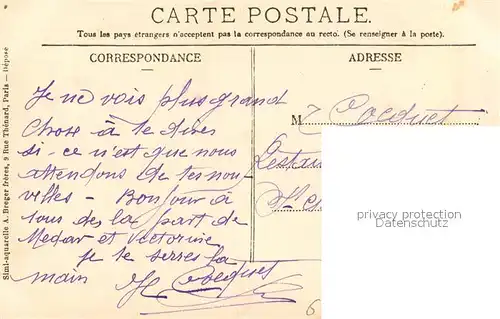 CARTE POSTALE.
Tous les pays étrangers n'acceptent pas la correspondance au recto. (Se renseigner à la poste).
CORRESPONDANCE
ADRESSE
Je ne vois plus grand
chose à te dire
si ce n'est que nous
attendons de tes nou-
velles - Bonjour à
tous de la part de
Medar et Victorine
je te serres la
main H Cocquet
M Cocquet
Restau
St
privacy protection
Datenschutz
6
Simi-aquarelle A. Breger frères, 9 Rue Thénard, Paris — Déposé